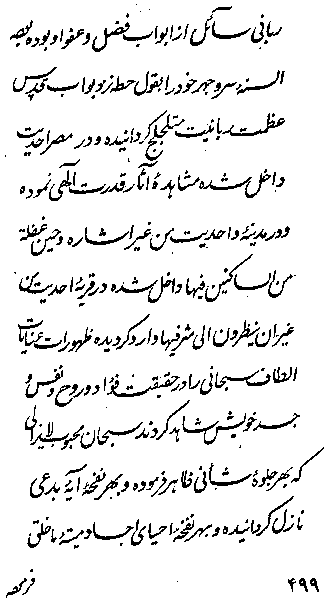 ربانی سائل از ابواب فضل و عفو او بوده بهمه
السنهٔ سر و جهر خود را بقول حطه نزد بواب قدس
عظمت ربانیت متلجلج گردانیده و در مصر احدیت
داخل شده مشاهدهٔ آثار قدرت الهی نموده
و در مدینهٔ واحدیت من غیر اشاره و حین غفلة
من الساکنین فیها داخل شده در قریهٔ احدیت من
غیر ان ینظرون الی شرفیها وارد گردیده ظهورات عنایات
الطاف سبحانی را در حقیقت فؤاد و روح و نفس و
جسد خویش مشاهد کردند سبحان محبوب لایزالی
که بهر جلوهٔ شأنی ظاهر فرموده و بهر نفحهٔ آیهٔ بدعی
نازل گردانیده و بهر نفخهٔ احیای اجساد میتهٔ ما خلق
۴۹۹